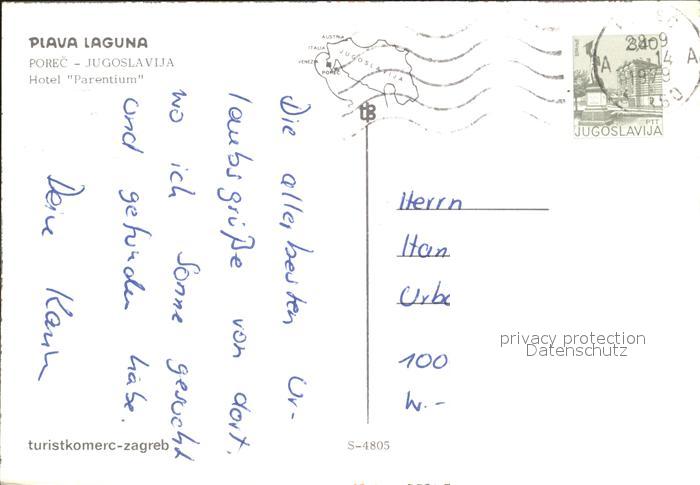 PLAVA LAGUNA
POREČ – JUGOSLAVIJA
Hotel "Parentium"
AUSTRIA
ITALIA
VENEZIA
POREČ
JUGOSLAVIJA
tz
3,40
28 9
14
1979
A A
PTT
JUGOSLAVIJA
Die allerbesten Ur-
laubsgrüße von dort,
wo ich Sonne gesucht
und gefunden habe.
Deine Karin
Herrn
Han
Urba
100
W.-
privacy protection
Datenschutz
turistkomerc-zagreb
S-4805